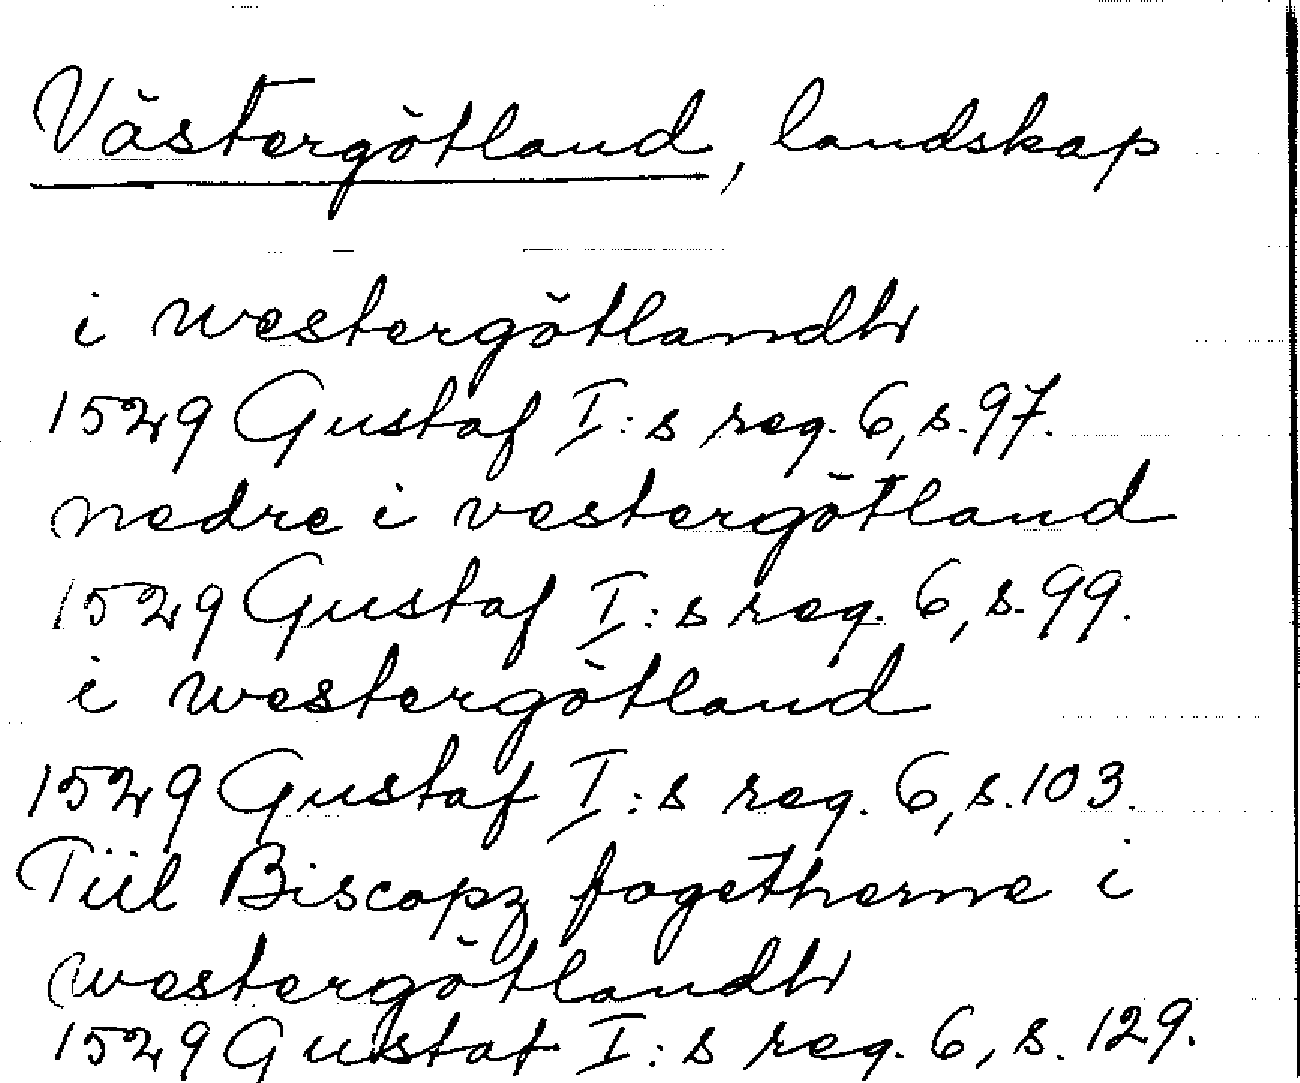 Västergötland, landskap
i westergötlandh
1529 Gustaf I:s reg. 6, s. 97.
nedre i vestergötland
1529 Gustaf I:s reg. 6, s. 99.
i westergötland
1529 Gustaf I:s reg. 6, s. 103.
Tiil Biscopz fogetherne i
westergötlandh
1529 Gustaf I:s reg. 6, s. 129.